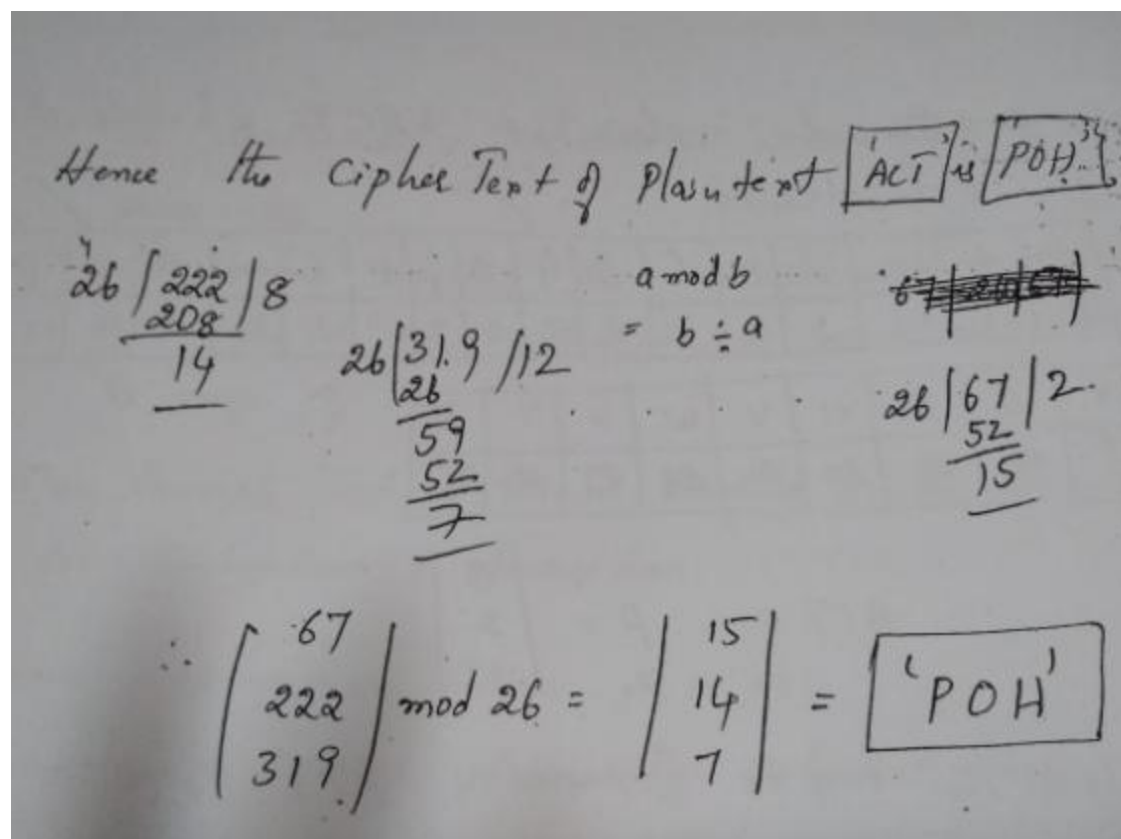 Hence the Cipher Text of Plain text 'ACT' is 'POH'
26 / 222 / 8
208
14
26 | 31.9 / 12
26
59
52
7
a mod b
= b ÷ a
26 | 67 | 2
52
15
∴ [ 67 222 319 ] mod 26 = | 15 14 7 | = 'POH'